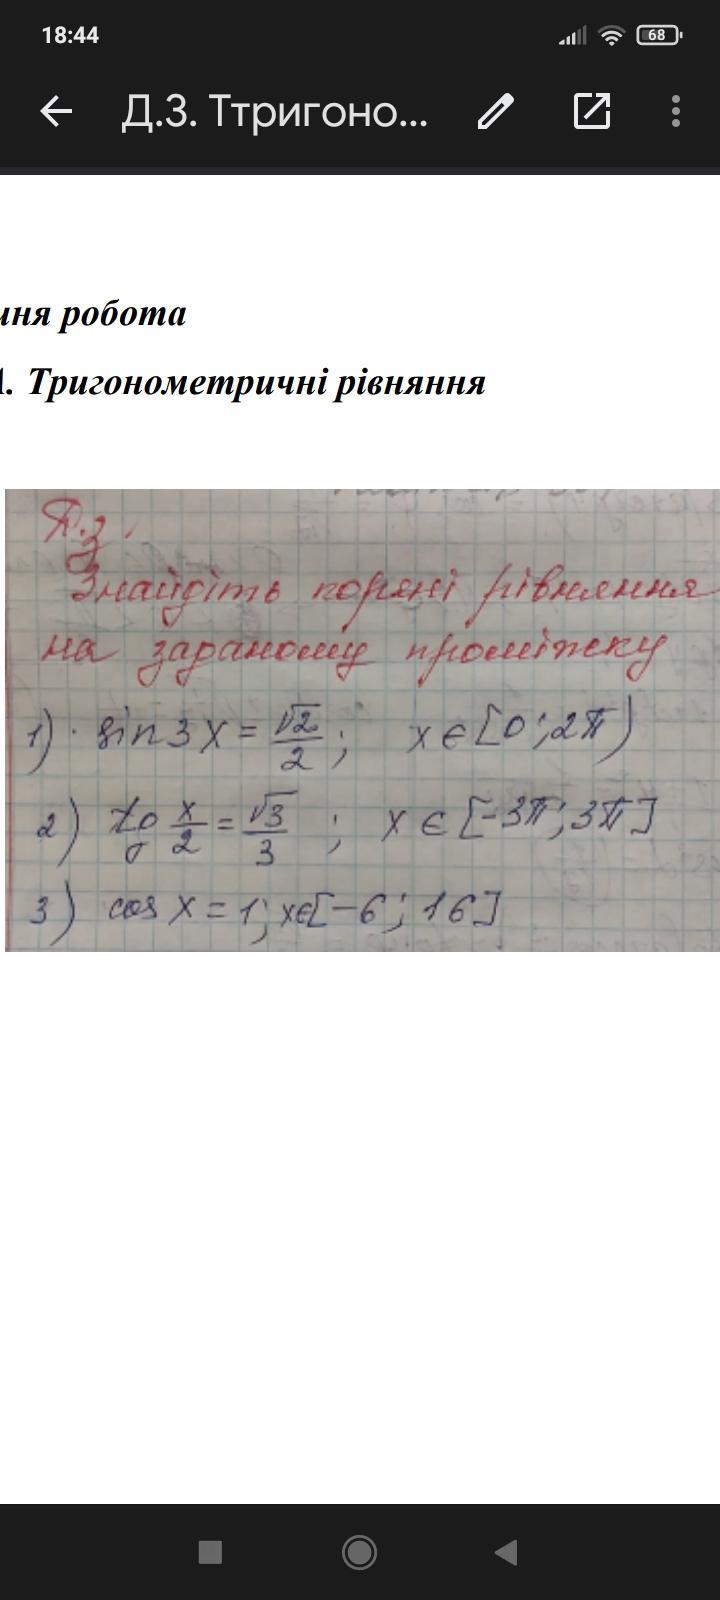 18:44
68
Д.З. Ттригоно...
ння робота
А. Тригонометричні рівняння
Д.з.
Знайдіть корені рівняння
на заданому проміжку
1) sin 3x = √2/2; x ∈ [0; 2π)
2) tg x/2 = √3/3; x ∈ [-3π; 3π]
3) cos x = 1; x ∈ [-6; 16]